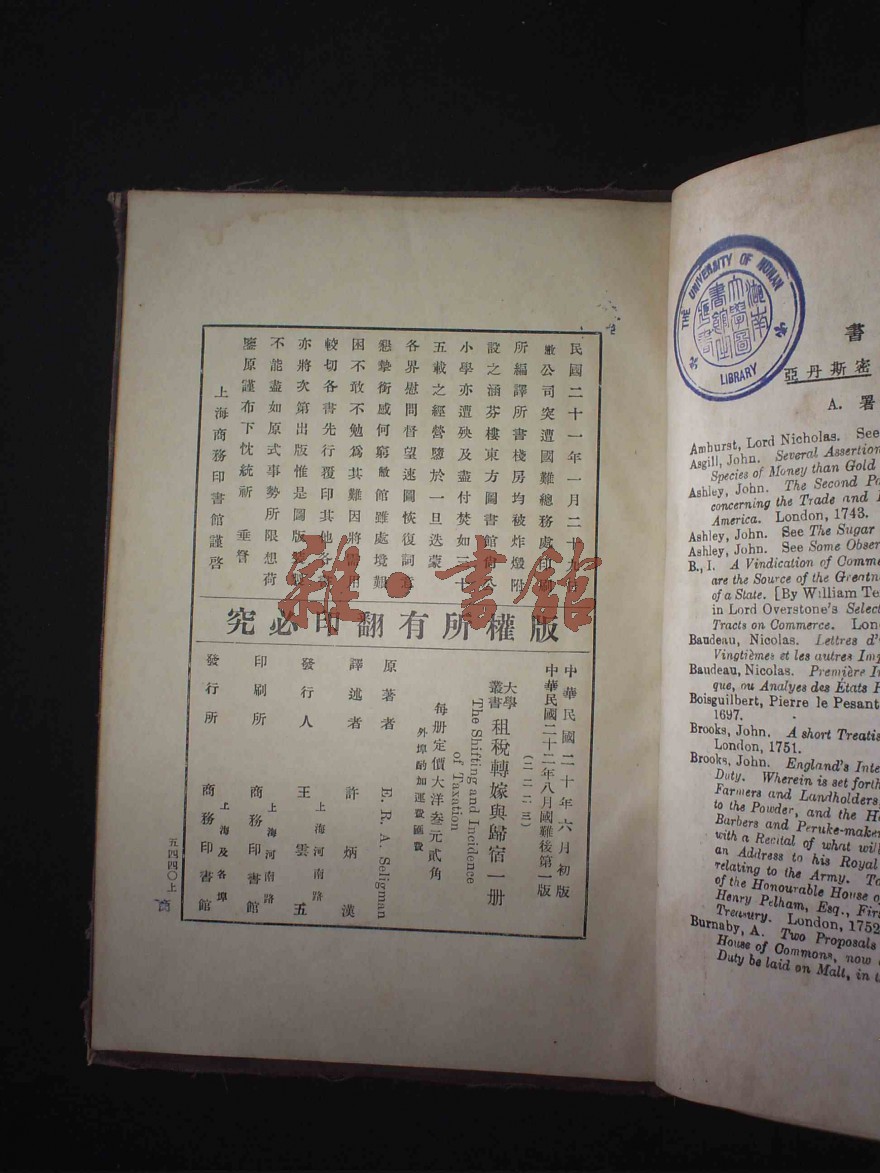 民國二十一年一月二十九日
敝公司突遭國難總務處印刷
所編譯所書棧房均被炸燬附
設之涵芬樓東方圖書館尚公
小學亦遭殃及盡付焚如三十
五載之經營隳於一旦迭蒙
各界慰問督望速圖恢復詞意
懇摯銜感何窮敝館雖處境艱
困不敢不勉爲其難因將需用
較切各書先行覆印其他各書
亦將次第出版惟是圖版裝製
不能盡如原式事勢所限想荷
鑒原謹布下忱統祈 垂詧
上海商務印書館謹啓
版權所有翻印必究
中華民國二十年六月初版
中華民國二十二年八月國難後第一版
(二一二三)
大學叢書 租稅轉嫁與歸宿一册
The Shifting and Incidence
of Taxation
每册定價大洋叁元貳角
外埠酌加運費匯費
原著者 E. R. A. Seligman
譯述者 許炳漢
發行人 王雲五
上海河南路
印刷所 商務印書館
上海河南路
發行所 商務印書館
上海及各埠
五四四〇上
雜·書館
THE UNIVERSITY OF HUNAN
湖南大學圖書館之
LIBRARY
書
亞丹斯密
A. 署
Amhurst, Lord Nicholas. See
Asgill, John. Several Assertion
Species of Money than Gold
Ashley, John. The Second Pa
concerning the Trade and
America. London, 1743.
Ashley, John. See The Sugar
Ashley, John. See Some Obser
B., I. A Vindication of Comme
are the Source of the Greatn
of a State. [By William Te
in Lord Overstone's Select
Tracts on Commerce. Lon
Baudeau, Nicolas. Lettres d'
Vingtièmes et les autres Imp
Baudeau, Nicolas. Première In
que, ou Analyes des États
Boisguilbert, Pierre le Pesant
1697.
Brooks, John. A short Treatis
London, 1751.
Brooks, John. England's Inte
Duty. Wherein is set forth
Farmers and Landholders,
to the Powder, and the H
Barbers and Peruke-maker
with a Recital of what wil
an Address to his Royal
relating to the Army. To
of the Honourable House of
Henry Pelham, Esq., Firs
Treasury. London, 1752
Burnaby, A. Two Proposals
House of Commons, now
Duty be laid on Malt, in t